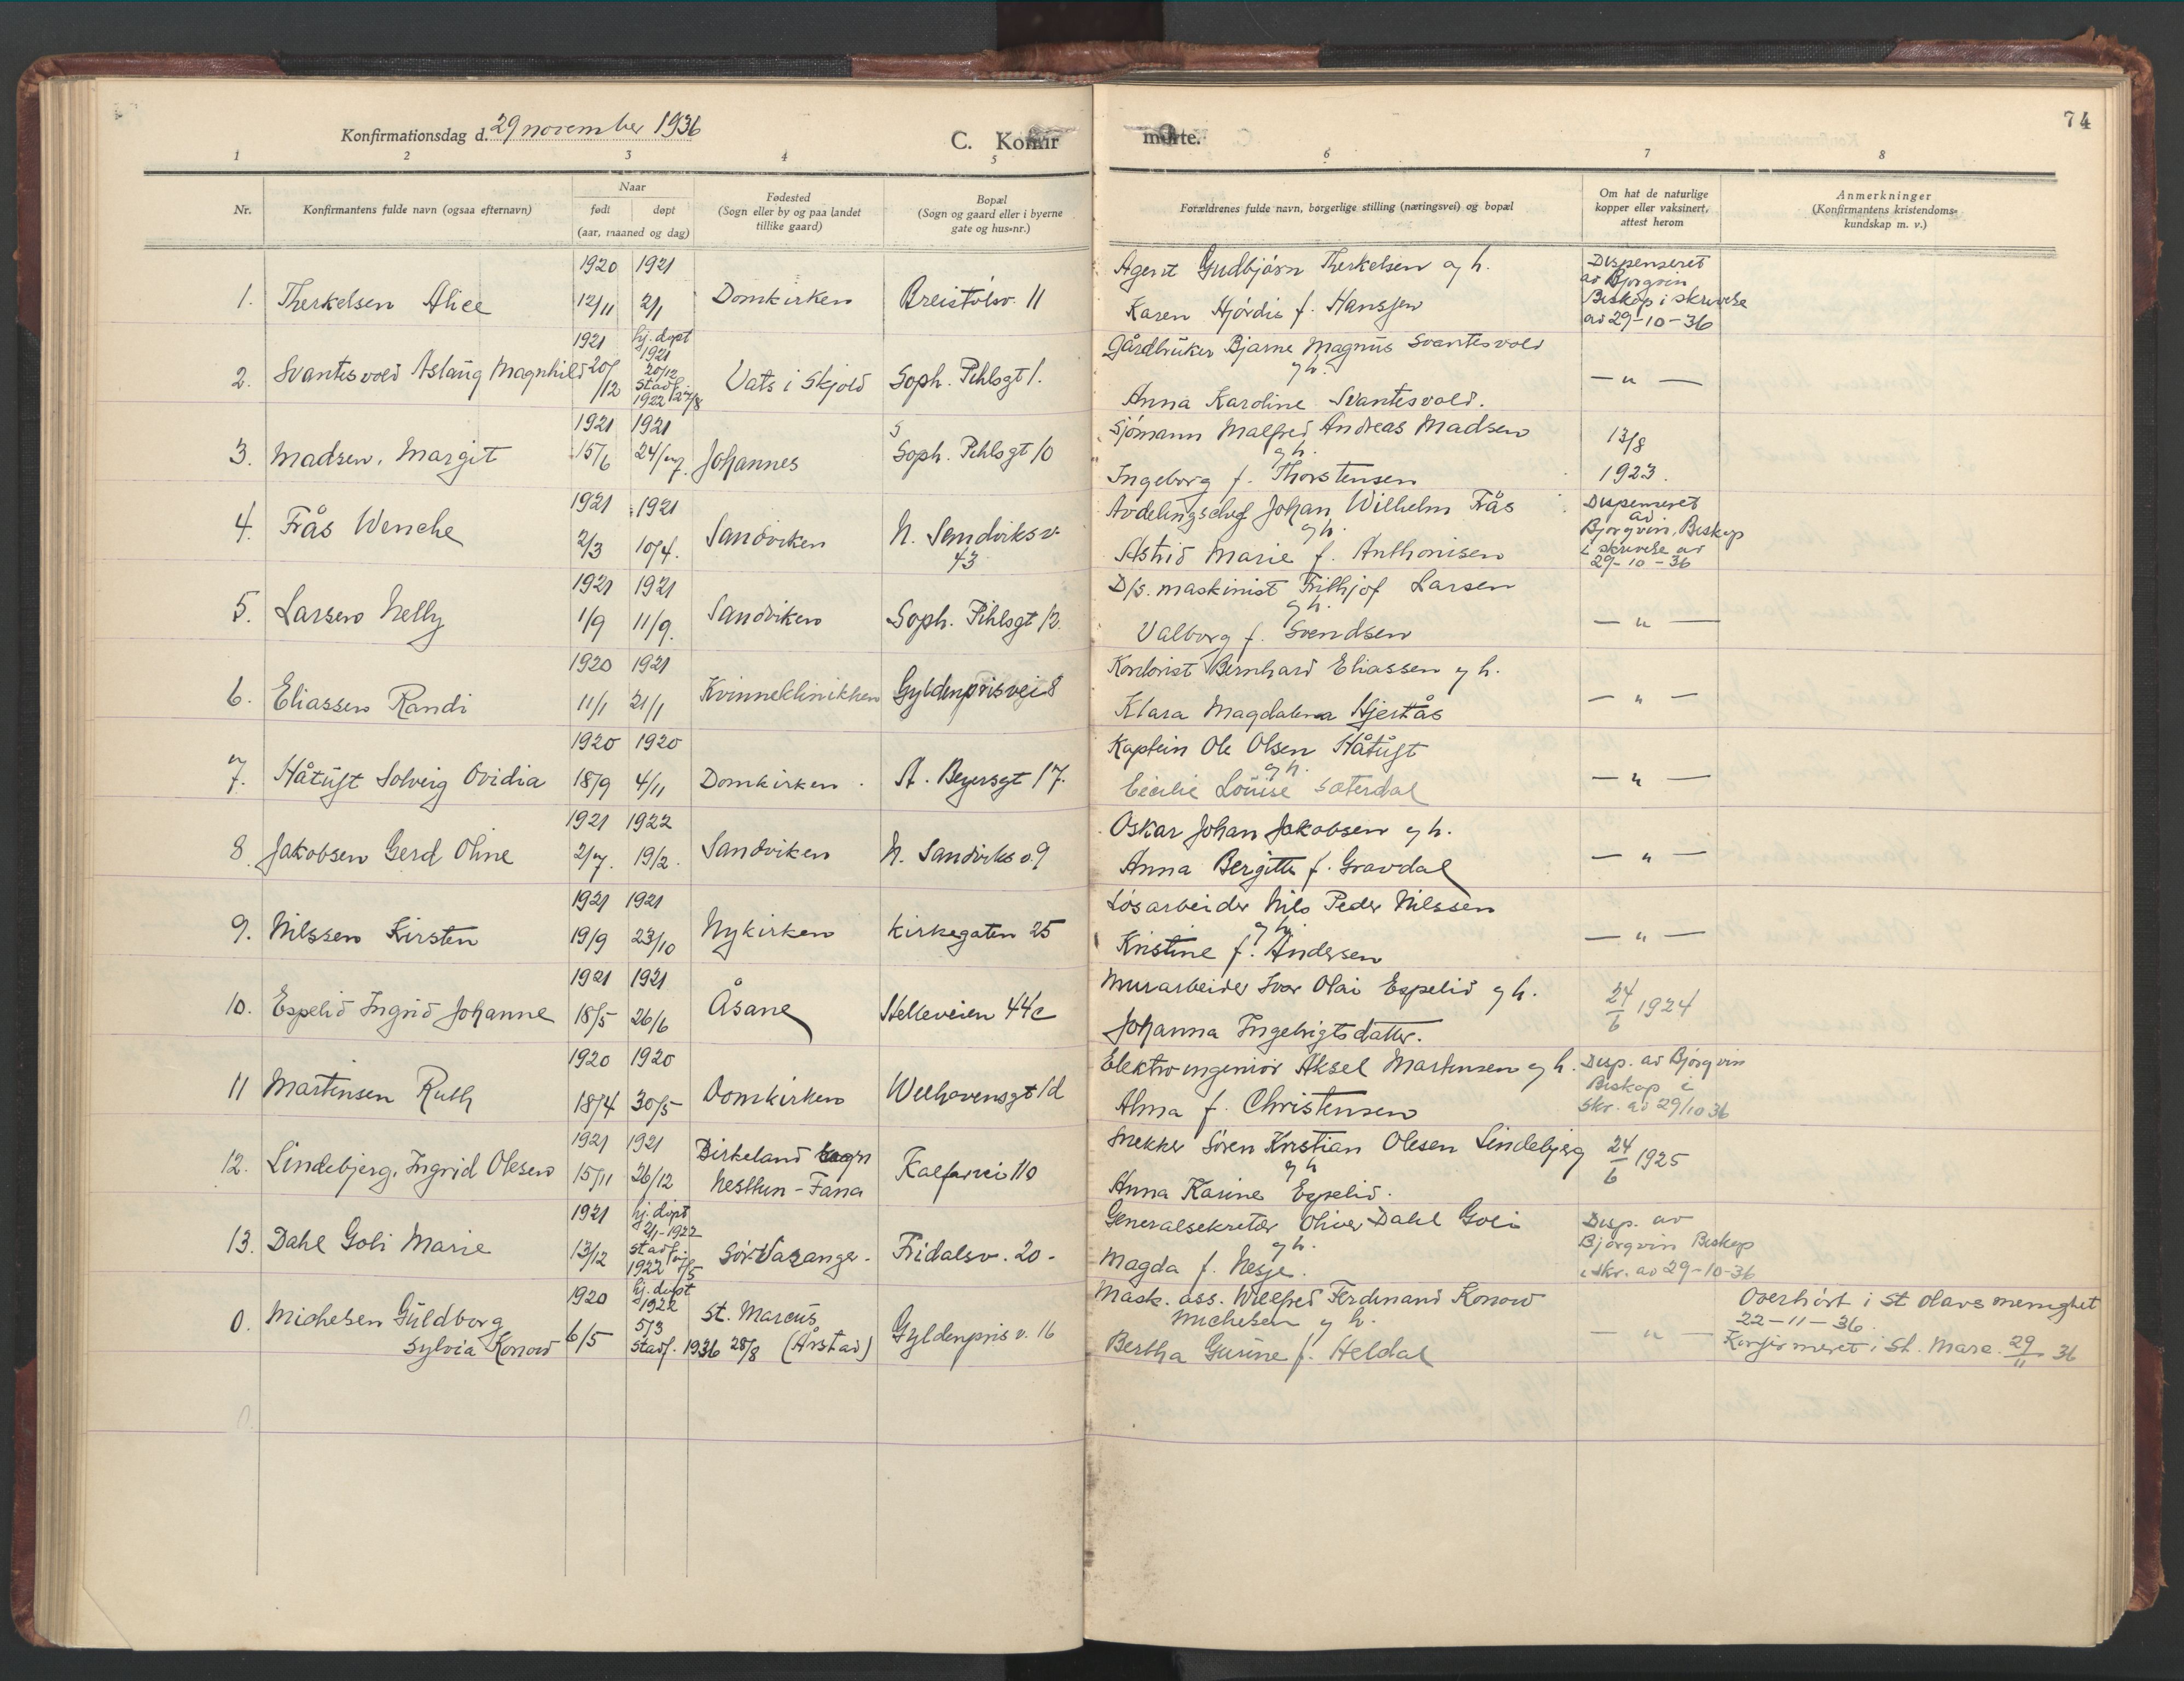 74
Konfirmationsdag d. 29 november 1936
C. Konfir
merte.
1 2 3 4 5 6 7 8
Nr.
Konfirmantens fulde navn (ogsaa efternavn)
Naar
født døpt
(aar, maaned og dag)
Fødested
(Sogn eller by og paa landet
tillike gaard)
Bopæl
(Sogn og gaard eller i byerne
gate og hus-nr.)
Forældrenes fulde navn, borgerlige stilling (næringsvei) og bopæl
Om hat de naturlige
kopper eller vaksinert,
attest herom
Anmerkninger
(Konfirmantens kristendoms-
kundskap m. v.)
1920 1921 Agent Gudbjørn Therkelsen og h. Dispenseret
av Bjørgvin
1. Therkelsen Alice 12/11 2/1 Domkirken Breistølsv. 11 Karen Hjørdis f. Hanssen Biskop i skrivelse
av 29-10-36
1921 hj. døpt Gårdbruker Bjarne Magnus Svantesvold
1921
og h.
2. Svantesvold Aslaug Magnhild 20/12 20/12 Vats i Skjold Soph. Pihlsgt 1. — " —
stadf.
1922 27/8 Anna Karoline Svantesvold.
1921 1921 Sjømann Malfred Andreas Madsen 13/8
3. Madsen, Margit 15/6 24/7. Johannes Soph. Pihlsgt 10 og h.
Ingeborg f. Thorstensen 1923.
1921 1921 Avdelingschef Johan Wilhelm Frås Dispenseret
av
4. Frås Wenche 2/3 10/4. Sandviken N. Sandviksv. og h. Bjørgvin, Biskop
43 Astrid Marie f. Anthonisen i skrivelse av
29-10-36
1921 1921 D/s. maskinist Frithjof Larsen
5. Larsen Nelly 1/9 11/9. Sandviken Soph. Pihlsgt 12. og h. — " —
Valborg f. Svendsen
1920 1921 Kontorist Bernhard Eliassen og h.
6. Eliassen Randi 11/1 21/1 Kvinneklinikken Gyldenprisvei 8 — " —
Klara Magdalena Hjertås
1920 1920 Kaptein Ole Olsen Håtuft
7. Håtuft Solveig Ovidia 18/9 4/11 Domkirken. A. Beyersgt 17. og h. — " —
Cecilie Louise Sæterdal
1921 1922 Oskar Johan Jakobsen og h.
8. Jakobsen Gerd Oline 2/7. 19/2. Sandviken N. Sandviksv. 9 — " —
Anna Bergitte f. Gravdal
1921 1921 Løsarbeider Nils Peder Nilssen
9. Nilssen Kirsten 19/9 23/10 Nykirken Kirkegaten 25 og h. — " —
Kristine f. Andersen
1921 1921 Murarbeider Ivar Olai Espelid og h.
10. Espelid Ingrid Johanne 18/5 26/6 Åsane Helleveien 44c 24/6 1924
Johanna Ingebrigtsdatter.
1920 1920 Elektroingeniør Aksel Martinsen og h. Disp. av Bjørgvin
11 Martinsen Ruth 18/4 30/5 Domkirken Welhavensgt 1d Biskop i
Alma f. Christensen skr. av 29/10 36
1921 1921 Birkeland sogn Snekker Søren Kristian Olesen Lindebjerg 24/6 1925
12. Lindebjerg, Ingrid Olesen 15/11 26/12 Nesttun - Fana Kalfarvei 110 og h
Anna Karine Espelid.
1921 hj. døpt Generalsekretær Oliver Dahl Goli Disp. av
2/1-1922
13. Dahl Goli Marie 13/12 stadf. Sør-Varanger. Fridalsv. 20. og h. Bjørgvin Biskop
1922 7/5 Magda f. Nesje. i skr. av 29-10-36
1920 hj. døpt Mask. ass. Wilfred Ferdinand Konow Overhørt i St Olavs menighet
1922
0. Michelsen Guldborg 6/5 5/3 St. Marcus Gyldenpris v. 16 Michelsen og h. — " — 22-11-36.
Sylvia Konow stadf. 1936 28/8 (Årstad) Bertha Gurine f. Heldal Konfirmeret i St. Marc. 29/11 36